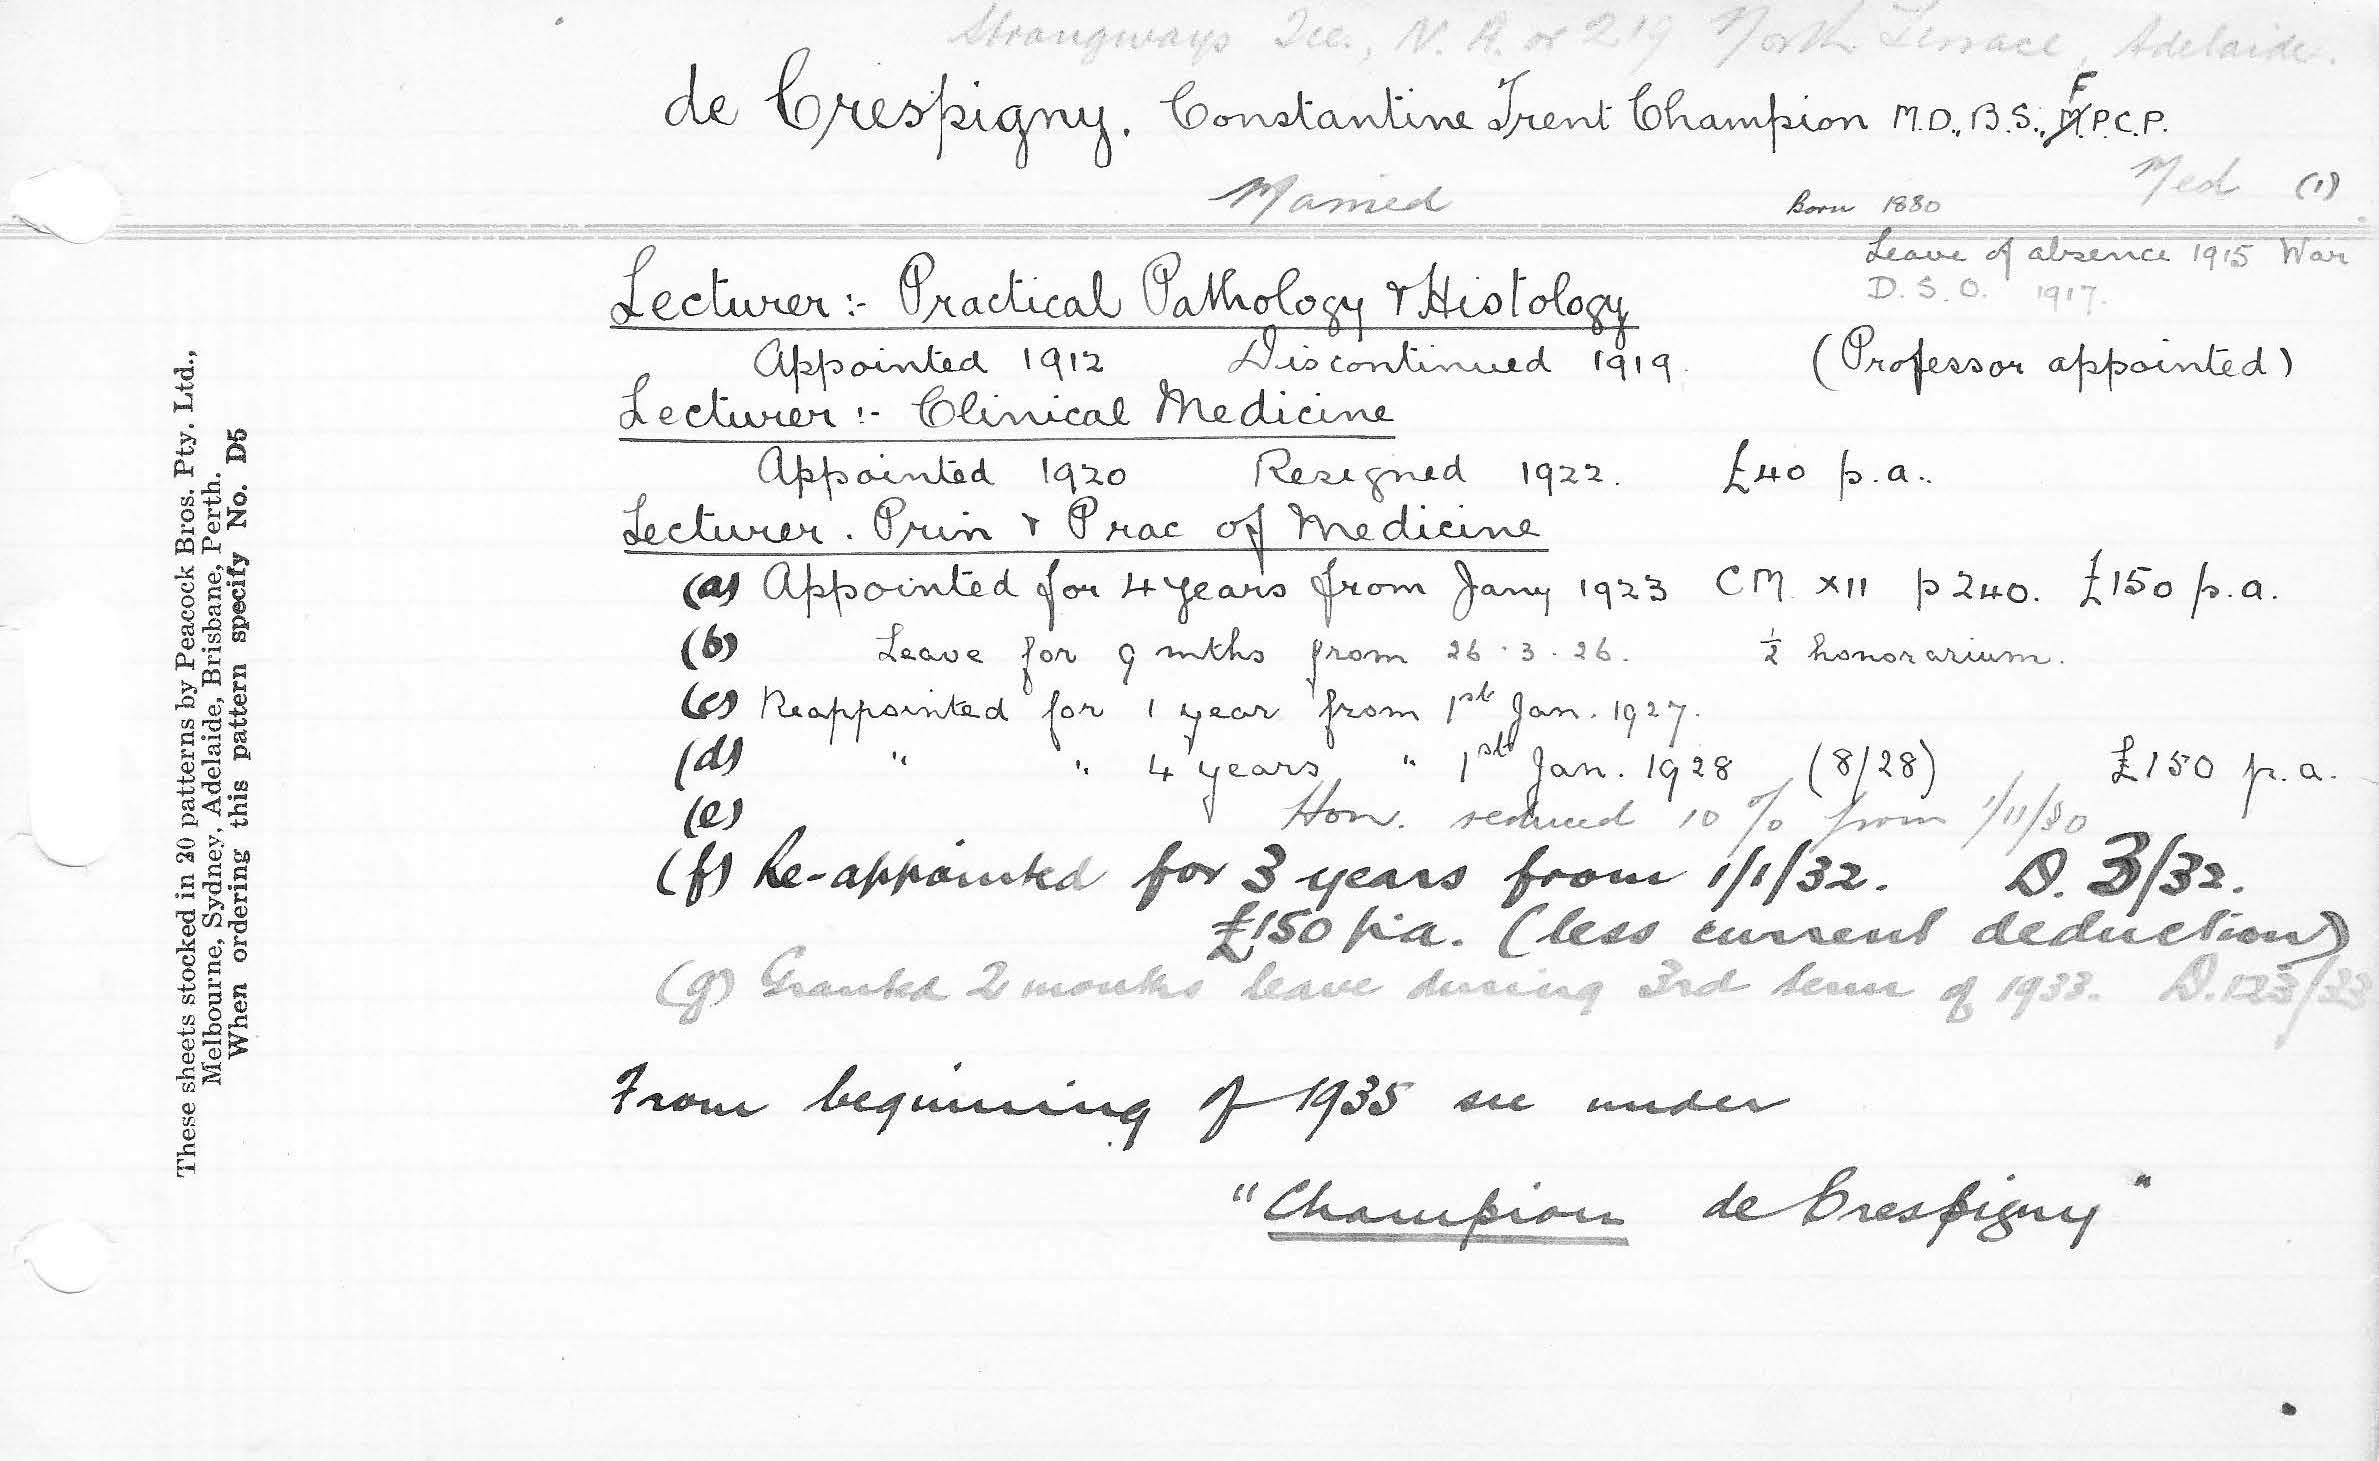 Strangways Tce., N. A. or 219 North Terrace, Adelaide.
de Crespigny. Constantine Trent Champion M.D., B.S., F.P.C.P.
Married Born 1880 Med (1)
Leave of absence 1915 War
D.S.O. 1917.
Lecturer:- Practical Pathology & Histology
Appointed 1912 Discontinued 1919. (Professor appointed)
Lecturer:- Clinical Medicine
Appointed 1920 Resigned 1922. £40 p.a..
Lecturer. Prin & Prac of Medicine
(a) Appointed for 4 years from Jany 1923 CM. XII p240. £150 p.a.
(b) Leave for 9 mths from 26.3.26. ½ honorarium.
(c) Reappointed for 1 year from 1st Jan. 1927.
(d) " " 4 years " 1st Jan. 1928 (8/28) £150 p.a.
(e) Hon. reduced 10% from 1/11/30
(f) Re-appointed for 3 years from 1/1/32. D. 3/32.
£150 p.a. (less current deduction)
(g) Granted 2 months leave during 3rd term of 1933. D.123/33
From beginning of 1935 see under
"Champion de Crespigny"
These sheets stocked in 20 patterns by Peacock Bros. Pty. Ltd.,
Melbourne, Sydney, Adelaide, Brisbane, Perth.
When ordering this pattern specify No. D5